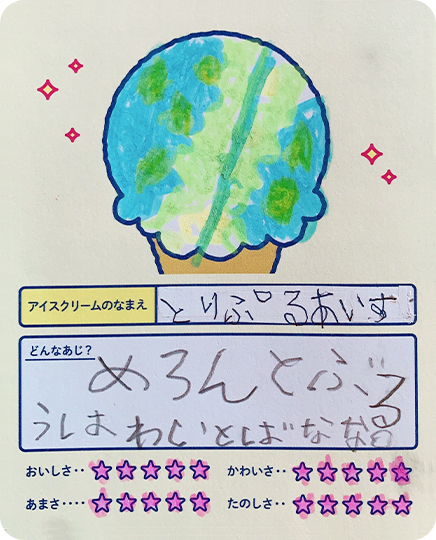 アイスクリームのなまえ
とりぷるあいす
どんなあじ？
めろんとぶる
うーはわいとばなな
おいしさ‥ ☆☆☆☆☆ かわいさ‥ ☆☆☆☆☆
あまさ‥‥ ☆☆☆☆☆ たのしさ‥ ☆☆☆☆☆